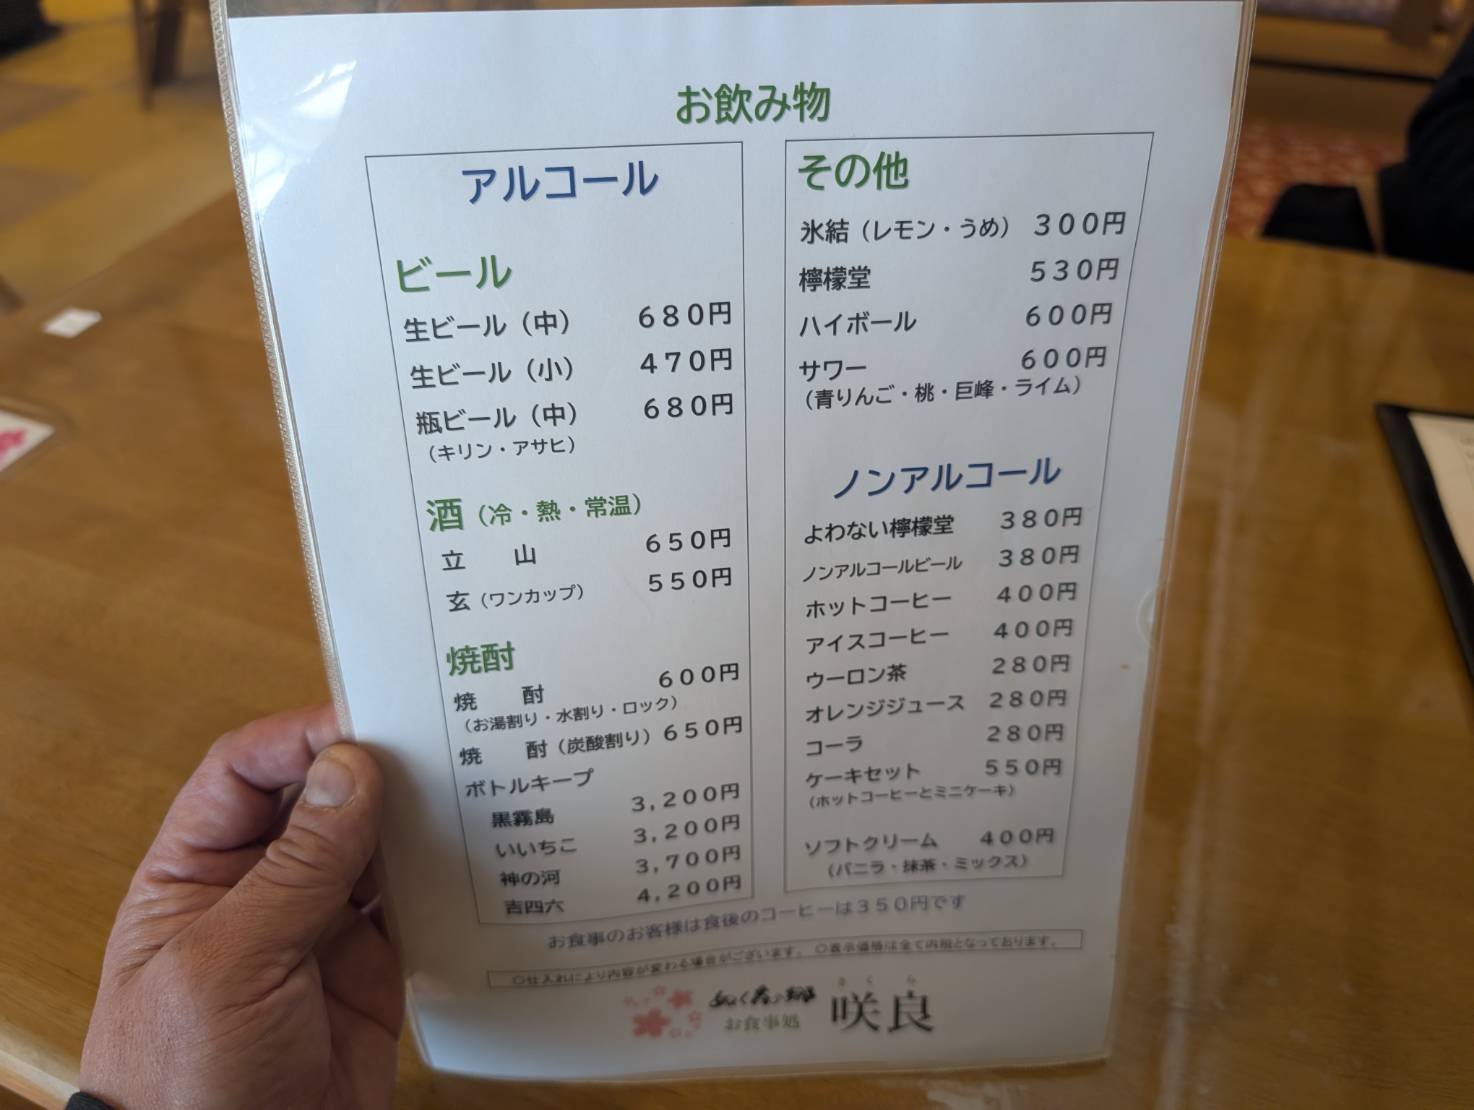 お飲み物
アルコール
ビール
生ビール（中） ６８０円
生ビール（小） ４７０円
瓶ビール（中） ６８０円
（キリン・アサヒ）
酒（冷・熱・常温）
立　山 ６５０円
玄（ワンカップ） ５５０円
焼酎
焼　酎 ６００円
（お湯割り・水割り・ロック）
焼　酎（炭酸割り）６５０円
ボトルキープ
黒霧島 ３,２００円
いいちこ ３,２００円
神の河 ３,７００円
吉四六 ４,２００円
その他
氷結（レモン・うめ） ３００円
檸檬堂 ５３０円
ハイボール ６００円
サワー ６００円
（青りんご・桃・巨峰・ライム）
ノンアルコール
よわない檸檬堂 ３８０円
ノンアルコールビール ３８０円
ホットコーヒー ４００円
アイスコーヒー ４００円
ウーロン茶 ２８０円
オレンジジュース ２８０円
コーラ ２８０円
ケーキセット ５５０円
（ホットコーヒーとミニケーキ）
ソフトクリーム ４００円
（バニラ・抹茶・ミックス）
お食事のお客様は食後のコーヒーは３５０円です
○仕入れにより内容が変わる場合がございます。 ○表示価格は全て内税となっております。
さくら
お食事処 咲良